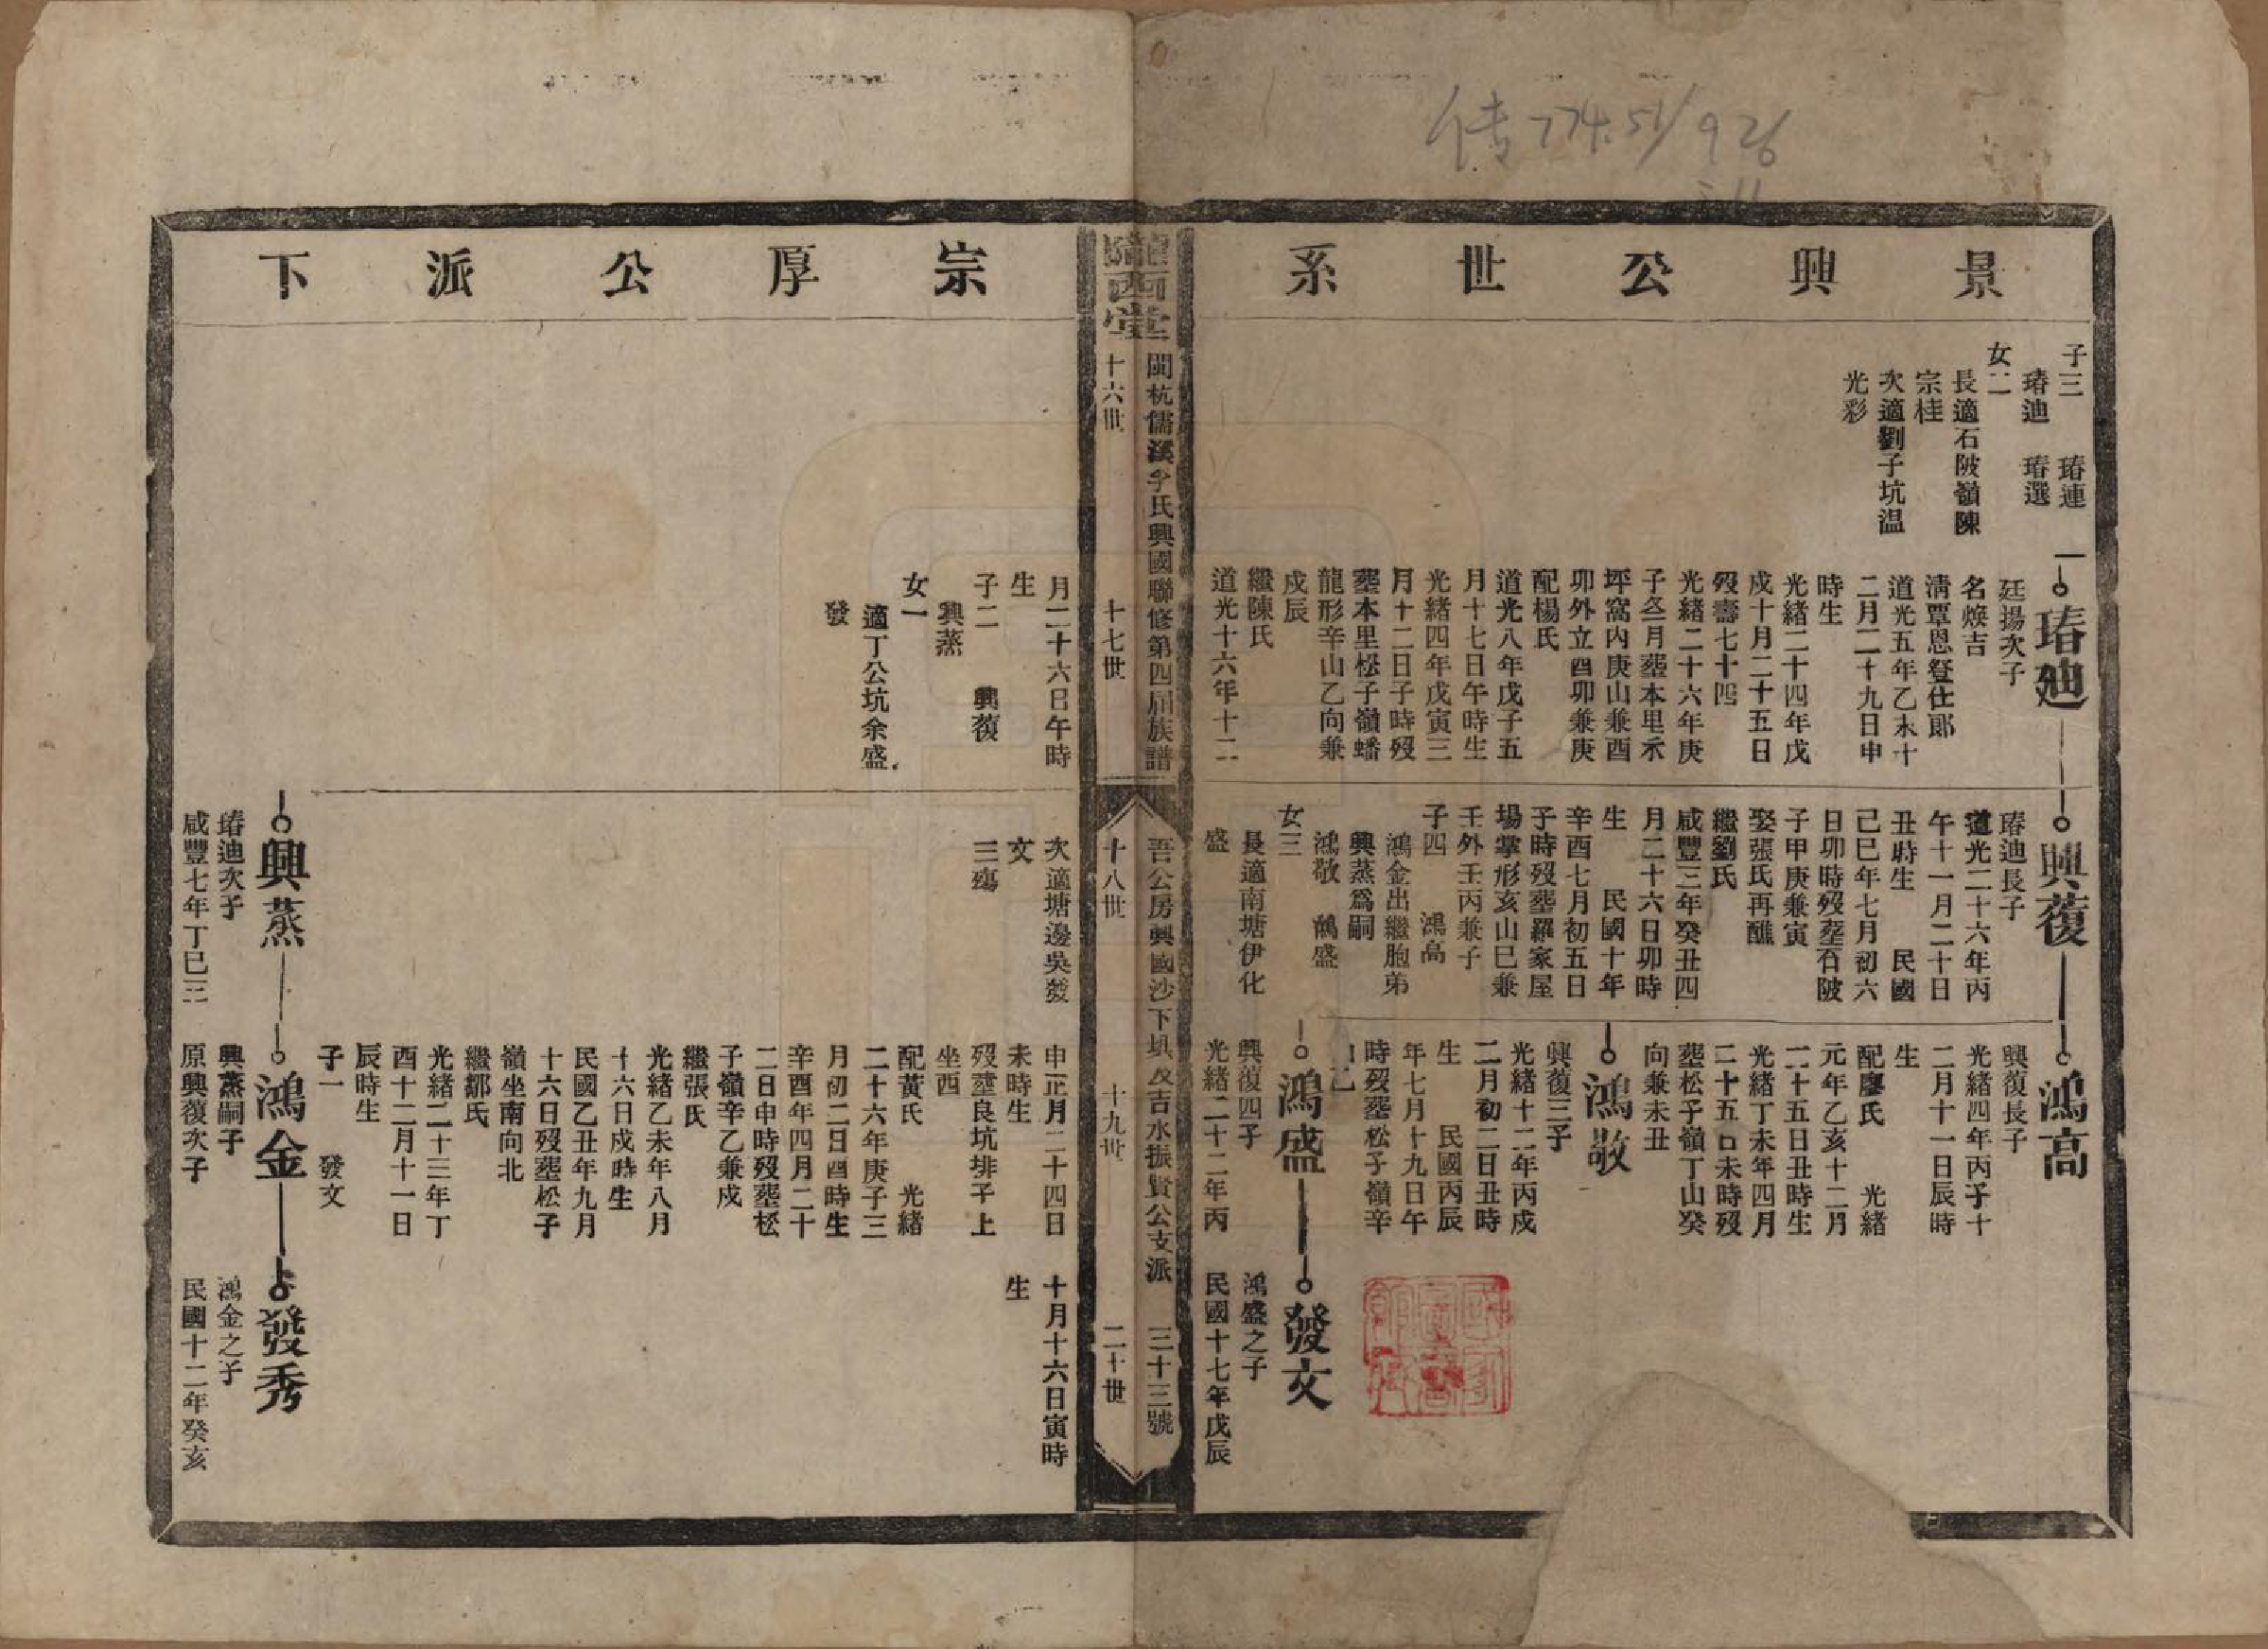 景興公世系
子三　瑃連
瑃迪　瑃選
女二
長適石陂嶺陳
宗桂
次適劉子坑温
光彩
瑃迪
廷揚次子
名煥吉
清覃恩登仕郎
道光五年乙未十
二月二十九日申
時生
光緒二十四年戊
戌十月二十五日
歿壽七十四
光緒二十六年庚
子叁月塟本里禾
坪窩內庚山兼酉
卯外立酉卯兼庚
配楊氏
道光八年戊子五
月十七日午時生
光緒四年戊寅三
月十二日子時歿
塟本里松子嶺蟠
龍形辛山乙向兼
戍辰
繼陳氏
道光十六年十二
興蕧
瑃迪長子
道光二十六年丙
午十一月二十日
丑時生　民國
己巳年七月初六
日卯時歿塟石陂
子甲庚兼寅
娶張氏再醮
繼劉氏
咸豐三年癸丑四
月二十六日卯時
生　民國十年
辛酉七月初五日
子時歿塟羅家屋
場掌形亥山巳兼
壬外壬丙兼子
子四　鴻高
鴻金出繼胞弟
興蒸爲嗣
鴻敬　鴻盛
女三
長適南塘伊化
盛
鴻高
興復長子
光緒四年丙子十
二月十一日辰時
生
配廖氏　光緒
元年乙亥十二月
二十五日丑時生
光緒丁未年四月
二十五日未時歿
塟松子嶺丁山癸
向兼未丑
鴻敬
興復三子
光緒十二年丙戌
二月初二日丑時
生　民國丙辰
年七月十九日午
時歿塟松子嶺辛
山乙
鴻盛
興復四子
光緒二十二年丙
發文
鴻盛之子
民國十七年戊辰
隴西堂
閩杭儒溪李氏興國聯修第四屆族譜
吾公房興國沙下垻及吉水振賢公支派　三十三號
十六世　十七世　十八世　十九世　二十世
宗厚公派下
月二十六日午時
生
子二　興蕧
興蒸
女一
適丁公坑余盛
發
次適塘邊吳發
文
三殤
申正月二十四日
未時生
歿塟良坑排子上
坐西
配黃氏　光緒
二十六年庚子三
月初二日酉時生
辛酉年四月二十
二日申時歿塟松
子嶺辛乙兼戍
繼張氏
光緒乙未年八月
十六日戍時生
民國乙丑年九月
十六日歿塟松子
嶺坐南向北
繼鄒氏
光緒二十三年丁
酉十二月十一日
辰時生
子一　發文
十月十六日寅時
生
興蒸
瑃迪次子
咸豐七年丁巳三
鴻金
興蒸嗣子
原興復次子
發秀
鴻金之子
民國十二年癸亥
传774.51/926